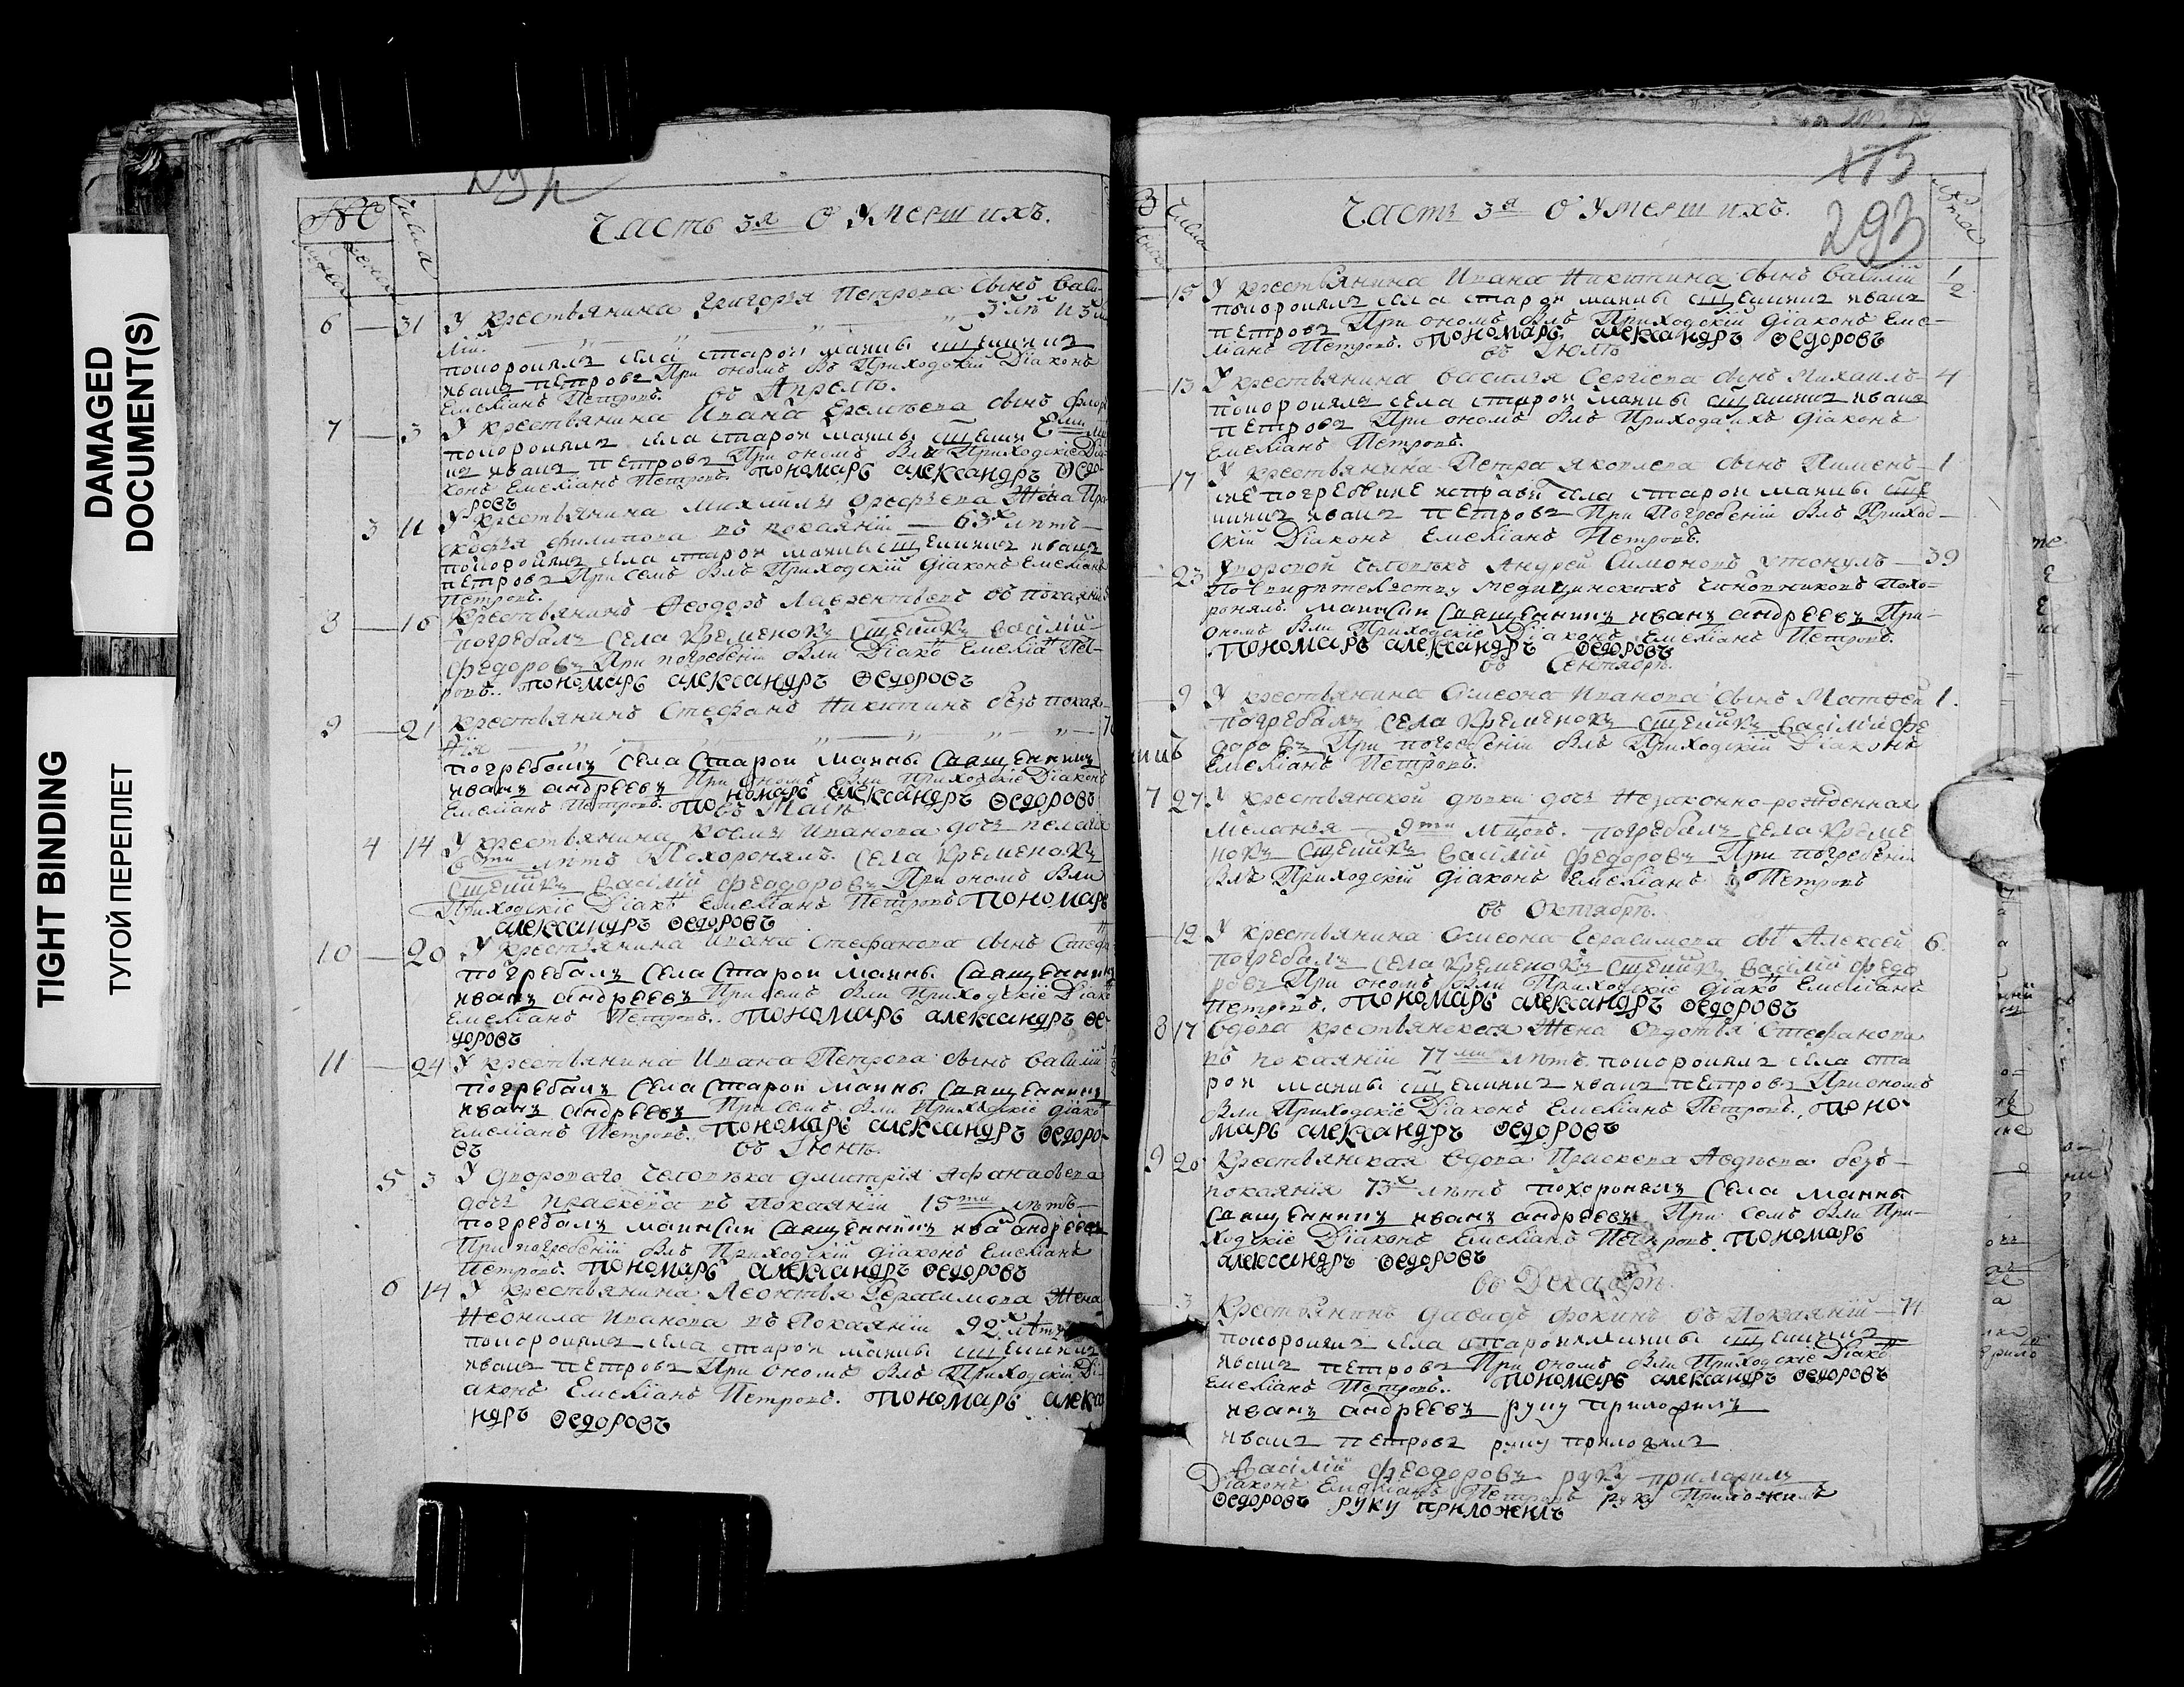 DAMAGED
DOCUMENT(S)
TIGHT BINDING
ТУГОЙ ПЕРЕПЛЕТ
Часть 3я О Умершихъ.
6 — 31 У крестьянина Григорья Петрова сынъ Васи-
похоронялъ села старой маины сщенникъ
иванъ петровъ При ономъ Былъ Приходскій Діаконъ
Емеліанъ Петровъ. въ Апрелѣ.
7 — 3 У крестьянина Ивана Еремѣева сынъ
похоронялъ села старой маины сщенни
иванъ петровъ При ономъ Были Приходскіе Діа
конъ Емеліанъ Петровъ. пономарь александръ ѳедо-
ровъ
3 11 У крестьянина Михайлы Арефьева Жена Пра
сковья филипова въ покаяніи — 63х лѣтъ —
похоронялъ села старой маины сщенникъ иванъ
петровъ При семъ Былъ Приходскій діаконъ Емеліанъ
Петровъ.
8 — 16 Крестьянинъ Ѳеодоръ Лаврентьевъ въ покаяніи
погребалъ села Кременокъ сщенникъ василій
федоровъ При погребеніи Были Діако Емеліа Пет-
ровъ. пономарь александръ ѳедоровъ
9 — 21 крестьянинъ Стефанъ Никитинъ безъ покая-
нія
погребалъ села Старой Маины Священникъ
иванъ андреевъ При ономъ Были Приходскіе Діаконъ
Емеліанъ Петровъ. пономарь александръ ѳедоровъ
въ Маiѣ
4 14 У крестьянина Козмы Иванова дочь пелагія
6ти лѣтъ Похоронялъ. села Кременокъ
сщенникъ василій феодоровъ При ономъ Были
Приходскіе Діако Емеліанъ Петровъ пономарь
александръ ѳедоровъ
10 — 20 У крестьянина Ивана Стефанова сынъ Стефа
погребалъ села Старой маины. Священникъ
иванъ андреевъ При семъ Были Приходскіе Діако
Емеліанъ Петровъ. пономарь александръ ѳе-
доровъ
11 — 24 У крестьянина Ивана Петрова сынъ василій
погребалъ села Старой маины. Священникъ
иванъ андреевъ При семъ Были Приходскіе діако
Емеліанъ Петровъ. пономарь александръ ѳедоро-
въ въ Іюнѣ.
5 3 У дворового человѣка дмитрія Афанасьева
дочь праскевia въ Покаяніи 15ти лѣтъ —
погребалъ маинскій Священникъ иванъ андреевъ
При погребеніи Былъ Приходскій діаконъ Емеліанъ
Петровъ. пономарь александръ ѳедоровъ
14 У крестьянина Леонтья Герасимова Жена
Неонила Иванова въ Покаяніи 92х лѣтъ
похоронялъ села старой маины сщенникъ
иванъ петровъ При ономъ Былъ Приходскій Ді-
аконъ Емеліанъ Петровъ. пономарь алекса
ндръ ѳедоровъ
175
Часть 3я О Умершихъ. 293
Числа Лѣта
— 15 У крестьянина Ивана Никитина сынъ Василій 1/2
похоронялъ села старой маины сщенникъ иванъ
петровъ При ономъ Былъ Приходскій діаконъ Еме-
ліанъ Петровъ. пономарь александръ ѳедоровъ
въ Іюлѣ
— 13 У крестьянина Василья Сергіева сынъ Михаилъ — 4
похоронялъ села старой маины сщенникъ иванъ
петровъ При ономъ Былъ Приходскихъ діаконъ
Емеліанъ Петровъ.
— 17 У крестьянина Петра Яковлева сынъ Пименъ — 1
погребение исправи села старой маины сще
нникъ иванъ петровъ При Погребеніи Былъ Приход-
скій Діаконъ Емеліанъ Петровъ.
— 23 дворовой Человѣкъ Андрей Симоновъ утонулъ — 39
По свидѣтельству медицинскихъ чиновниковъ Похо-
ронялъ. маинскій Священникъ иванъ андреевъ При
ономъ Были Приходскіе Діаконъ Емеліанъ Петровъ.
пономарь александръ ѳедоровъ
въ Сентябрѣ.
— 9 У крестьянина Симеона Иванова сынъ Матѳей 1.
погребалъ села Кременокъ сщенникъ василій фе
доровъ При погребеніи Былъ Приходскій Діаконъ
Емеліанъ Петровъ.
7 27 У крестьянской дѣвки дочь Незаконно-рожденная
Меланья — 9ти мцовъ. погребалъ села Креме
нокъ сщенникъ василій федоровъ При погребеніи
Былъ Приходскій діаконъ Емеліанъ Петровъ
въ Октябрѣ.
— 12 У крестьянина Симеона Герасимова сы Алексей 6.
погребалъ села Кременокъ сщенникъ василій федо
ровъ При ономъ Были Приходскіе діако Емеліанъ
Петровъ. пономарь александръ ѳедоровъ
8 17 Вдова крестьянская Жена Авдотья Стефанова
въ покаяніи 77ми лѣтъ. похоронялъ села ста
рой маины сщенникъ иванъ петровъ При ономъ
Были Приходскіе Діаконъ Емеліанъ Петровъ., поно-
марь александръ ѳедоровъ
9 20 Крестьянская Вдова Праскева Авдѣева безъ —
покаянія 73х лѣтъ похоронялъ села маины
священникъ иванъ андреевъ При семъ Были При-
ходскіе Діаконъ Емеліанъ Петровъ. пономарь
александръ ѳедоровъ
въ Декабрѣ
— 3 Крестьянинъ давидъ фокинъ въ Покаяніи — 71
похоронялъ села старой маины сщенникъ
иванъ петровъ При ономъ Были Приходскіе Діако
Емеліанъ Петровъ. пономарь александръ ѳедоровъ
иванъ андреевъ руку приложилъ
иванъ петровъ руку приложилъ
василій феодоровъ руку приложилъ
Діаконъ Емеліанъ Петровъ руку Приложилъ
ѳедоровъ руку приложилъ